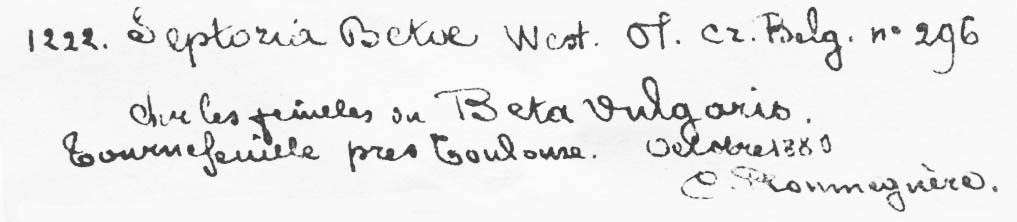 1222. Septoria Betae West. Of. cr. Belg. nº 296
Sur les feuilles du Beta Vulgaris.
Tournefeuille pres Toulouse. Octobre 1880
C. Roumeguère.